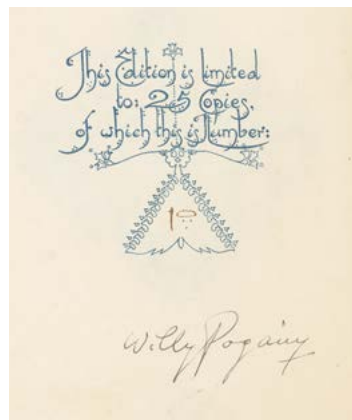 This Edition is limited
to: 25 Copies,
of which this is Number:
10
Willy Pogány